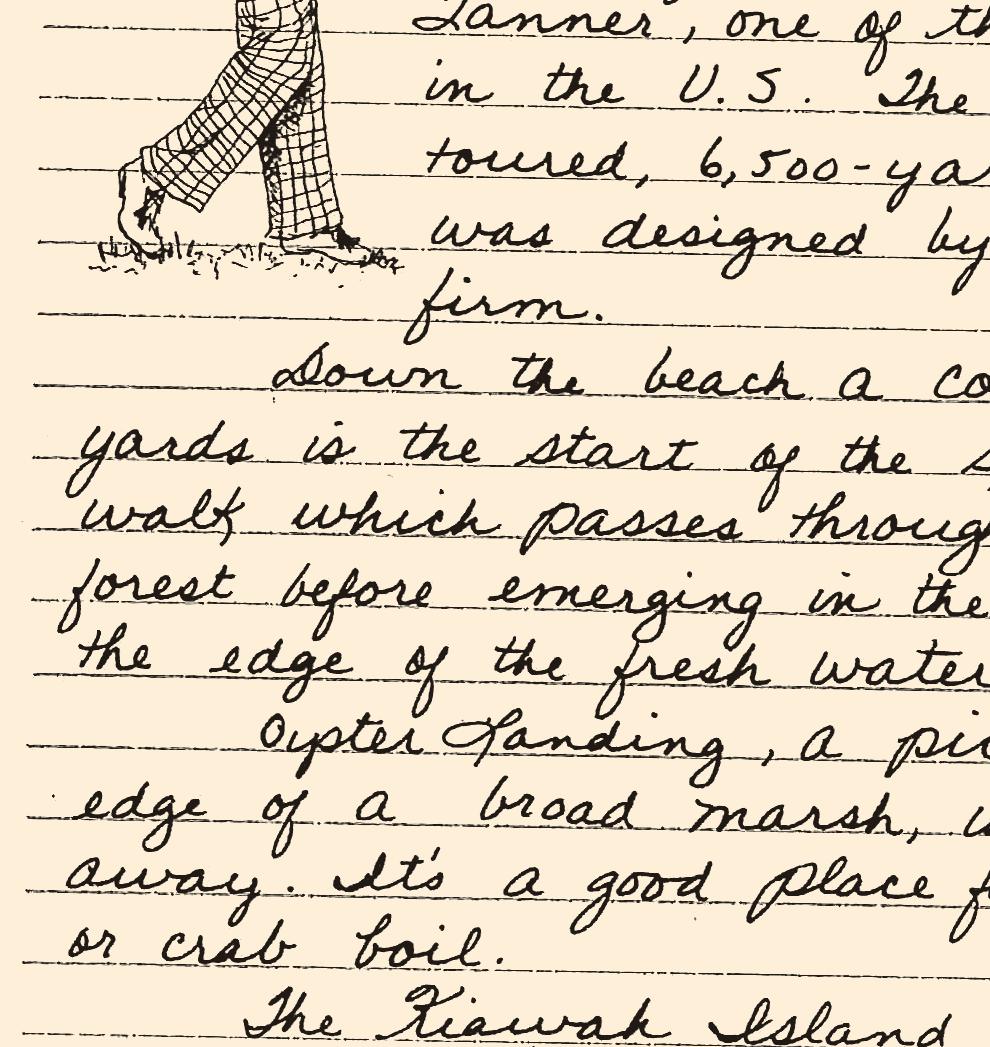 Lanner, one of th
in the U.S. The
toured, 6,500-ya
was designed by
firm.
Down the beach a co
yards is the start of the s
walk which passes throug
forest before emerging in the
the edge of the fresh water
Oyster Landing, a pic
edge of a broad marsh, w
away. It's a good place f
or crab boil.
The Kiawah Island